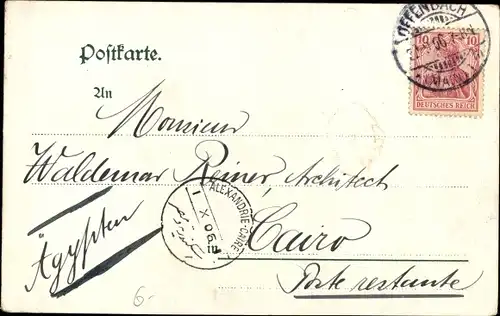 OFFENBACH
(MAIN) 1
10 10
DEUTSCHES REICH
Postkarte.
An
Monsieur
Waldemar Reiner, Architect
Cairo
Poste restante
Ägypten
ALEXANDRIE-CAIRE
1 X 06
III
6.-